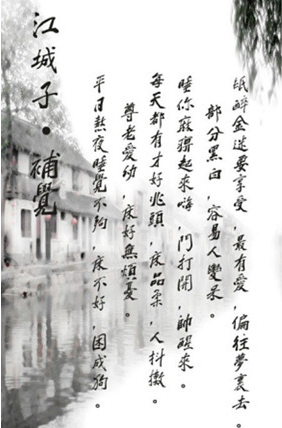 江城子·補覺
平日熬夜睡覺不夠,床不好,困成狗。
尊老愛幼,床好無煩憂。
每天都有才好兆頭,床品柔,人抖擻。
睡你起來嗨,門打開,帥醒來。
部分黑白,容易人變呆。
紙醉金迷要享受,最有愛,偏往夢裏去。